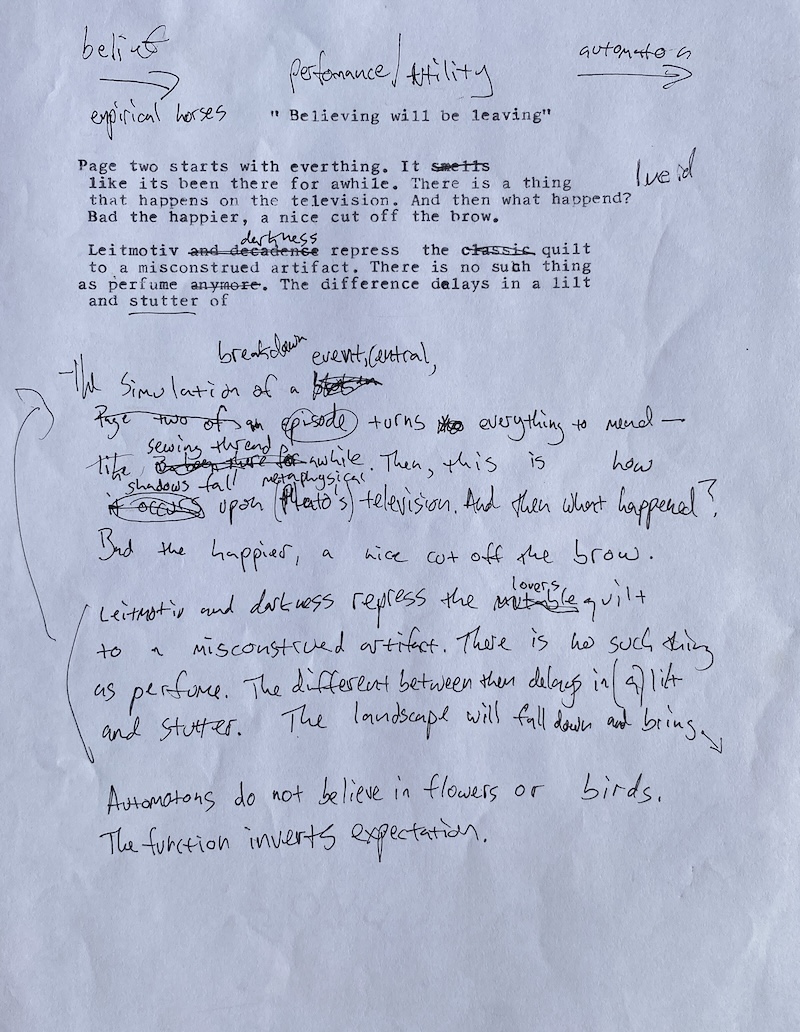 belief
perfomance/utility
automaton
empirical horses
" Believing will be leaving"
Page two starts with everthing. It smells
like its been there for awhile. There is a thing
lucid
that happens on the television. And then what happend?
Bad the happier, a nice cut off the brow.
darkness
Leitmotiv and decadence repress the classic quilt
to a misconstrued artifact. There is no such thing
as perfume anymore. The difference delays in a lilt
and stutter of
breakdown event, central,
The Simulation of a
Page two of an episode turns everything to mend—
sewing thread
like been there for awhile. Then, this is how
shadows fall metaphysical
it occurs upon (Plato's) television. And then what happened?
Bad the happier, a nice cut off the brow.
lovers
Leitmotiv and darkness repress the mutable quilt
to a misconstrued artifact. There is no such thing
as perfume. The different between then delays in (a) lilt
and stutter. The landscape will fall down and bring
Automatons do not believe in flowers or birds.
The function inverts expectation.